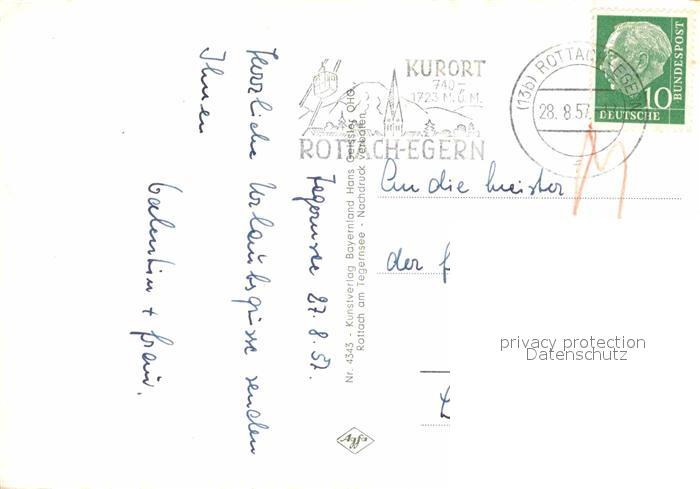 Tegernsee 27.8.57.
Herzliche Urlaubsgrüsse senden
Ihnen
Valentin + Frau.
Nr. 4343 - Kunstverlag Bayernland Hans Geissler OHG.
Rottach am Tegernsee - Nachdruck verboten
Agfa
KURORT
740-
1723 M.Ü.M.
ROTTACH-EGERN
(13b) ROTTACH-EGERN
28.8.57
10
DEUTSCHE
BUNDESPOST
An die Meister
der
privacy protection
Datenschutz